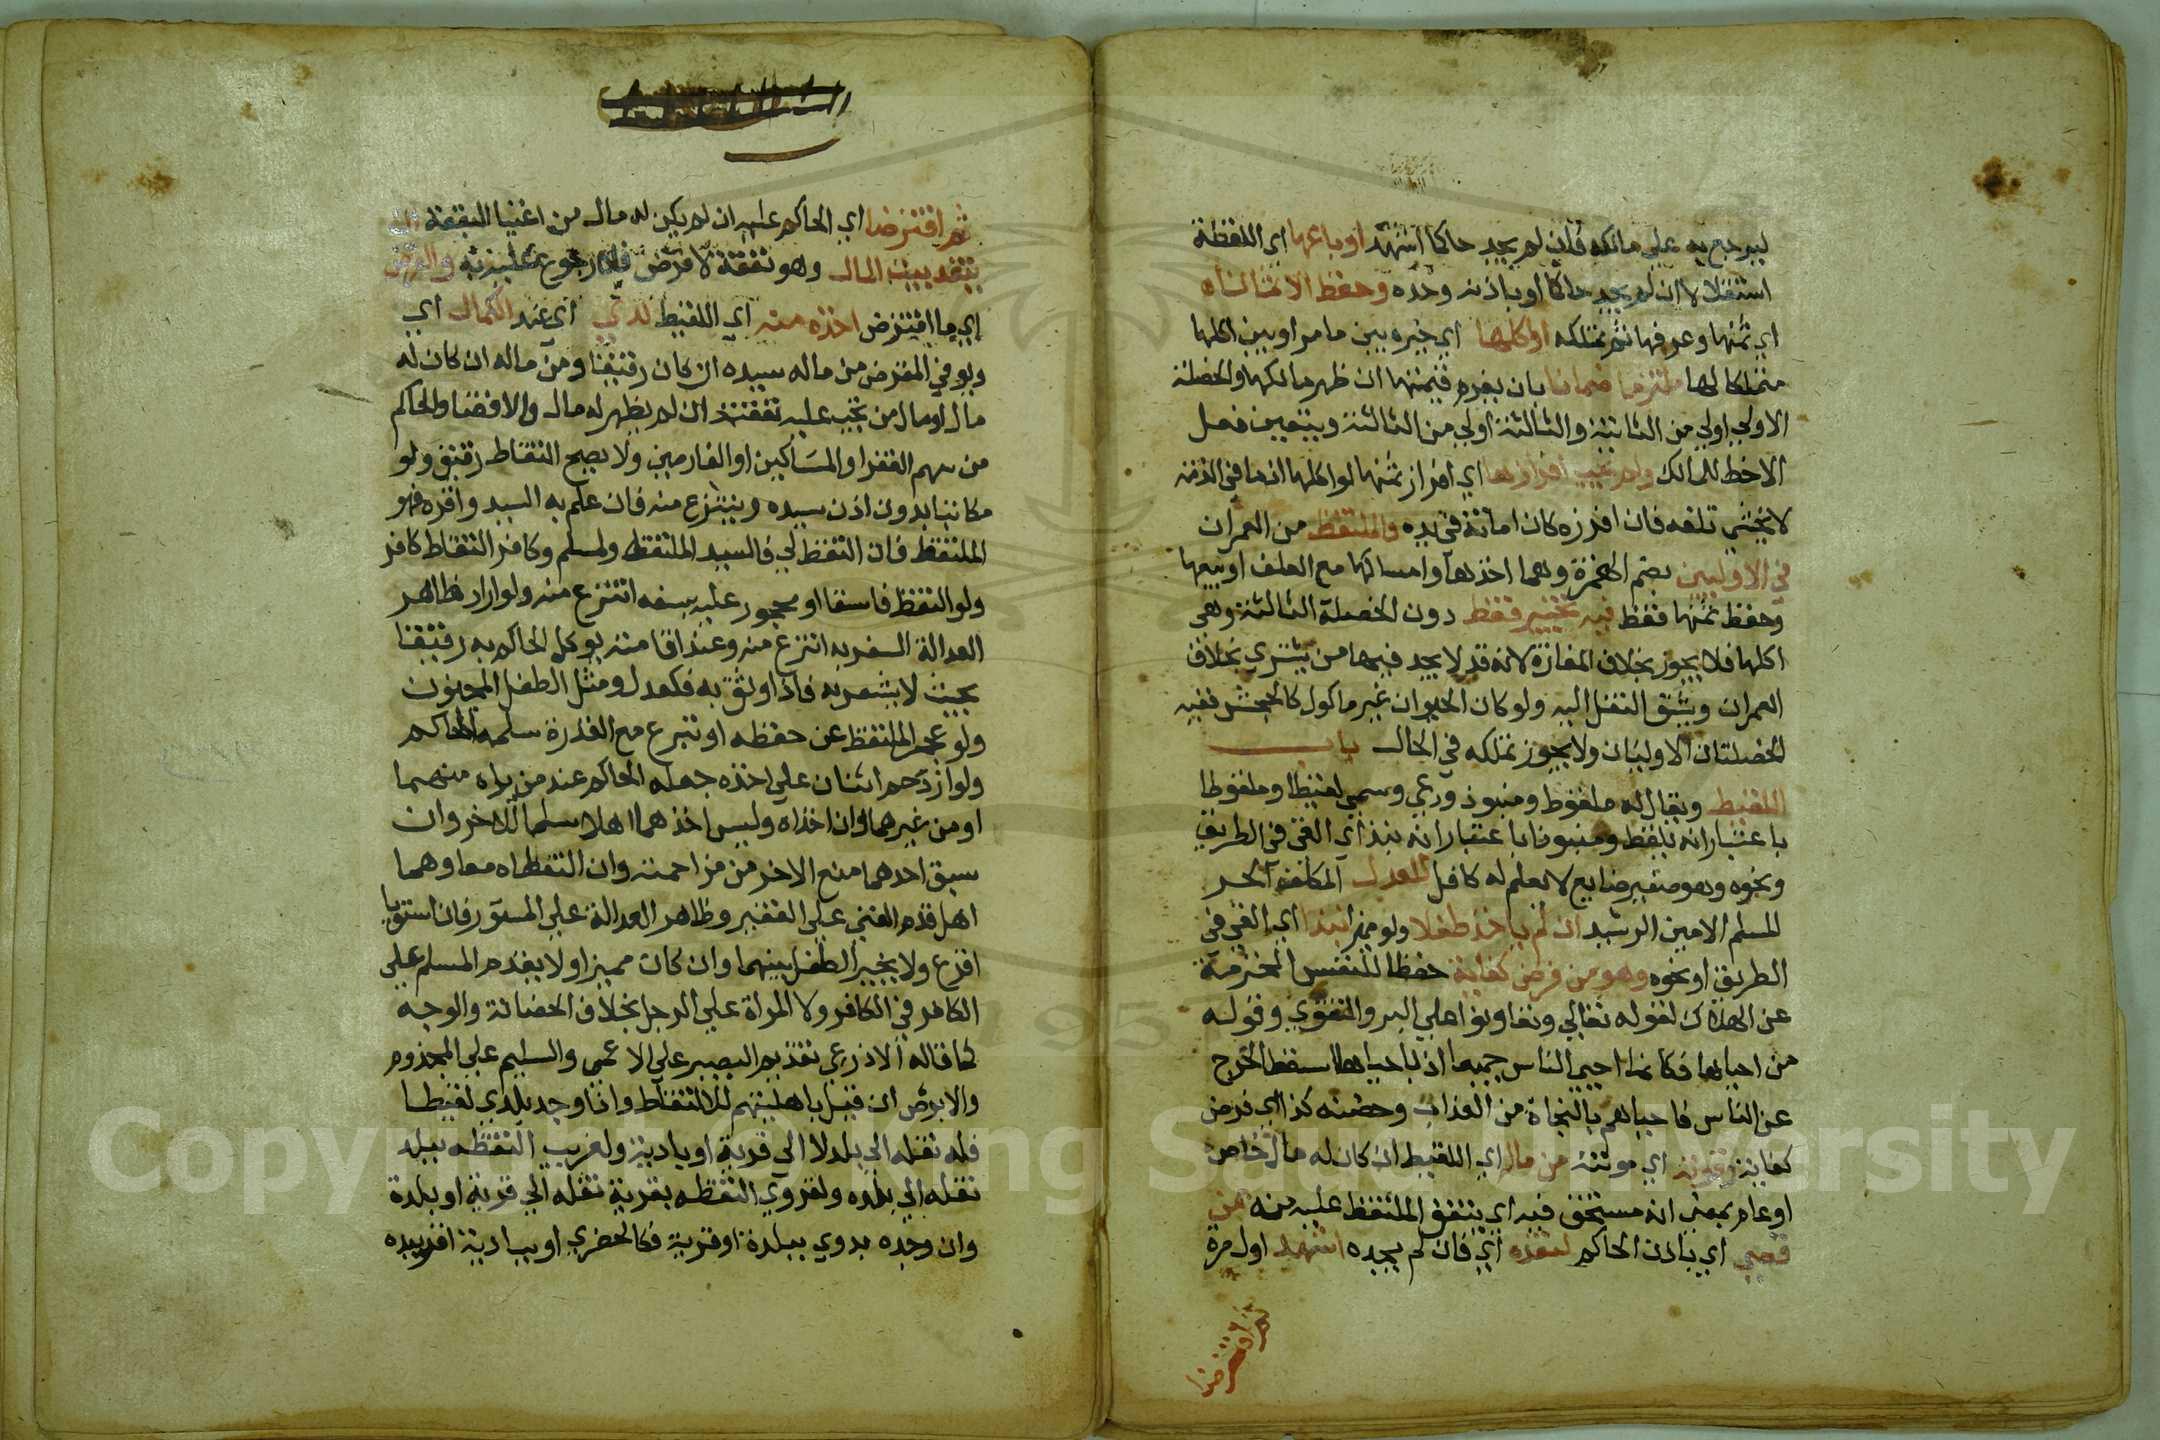 ليرجع به علي مالكه فان لم يجد حاكما اشهد او باعها اي اللقطة
استقلالا ان لم يجد حاكما او باذنه وحده وحفظ الاثمانا
اي ثمنها وعرفها ثم تملكه او اكلها اي خيره بين ما مر او بين اكلها
متملكا لها ملتزما ضمانا بان يغرم قيمتها ان ظهر مالكها والخصلة
الاولي اولي من الثانية والثالثة اولي من الثالثة ويتعين فعل
الاحظ للمالك ولم يجب افرازها اي افراز ثمنها لو اكلها لان ما في الذمة
لا يخشي تلفه فان افرزه كان امانة في يده والملتقط من العمران
في الاوليين بضم الهمزة وهما اخذها وامساكها مع العلف او بيعها
وحفظ ثمنها فقط فيه تخيير فقط دون الخصلة الثالثة وهي
اكلها فلا يجوز بخلاف المفازة لانه قد لا يجد فيها من يشتري بخلاف
العمران ويشق النقل اليه ولو كان الحيوان غير ماكول كالجحش ففيه
الخصلتان الاوليان ولا يجوز تملكه في الحال باب
اللقيط ويقال له ملقوط ومنبوذ ودعي وسمي لقيطا وملقوطا
باعتبار انه يلقط ومنبوذا باعتبار انه نبذ اي القي في الطريق
ونحوه وهو صغير ضايع لا يعلم له كافل للعدل المكلف الحر
المسلم الامين الرشيد ان ياخذ طفلا ولو مميزا نبذا اي القي في
الطريق او نحوه وهو من فرض كفاية حفظا للنفس المحترمة
عن الهلاك لقوله تعالي وتعاونوا علي البر والتقوي وقوله
من احياها فكانما احيي الناس جميعا اذ باحيائها سقط الحرج
عن الناس فاحياهم بالنجاة من العذاب وحضنه كذا اي فرض
كفاية وقوته اي مونته من مال اي اللقيط ان كان له مال خاص
او عام بمعني انه مستحق فيه اي ينفق الملتقط عليه منه من
قضي اي باذن الحاكم لفقده اي فان لم يجده اشهد اول مرة
ثم اقترضا
ثم اقترضا اي الحاكم عليه ان لم يكن له مال من اغنيا البقعة ان
يفقد بيت المال وهو نفقة لا قرض فلا رجوع عليه به والقرض
اي ما اقترض اخذه منه اي اللقيط لدي اي عند الكمال اي
ويوفي المقرض من ماله سيده ان كان رقيقا ومن ماله ان كان له
مال او مال من تجب عليه نفقته ان لم يظهر له مال والا فقضا الحاكم
من سهم الفقرا والمساكين او الغارمين ولا يصح التقاط رقيق ولو
مكاتبا بدون اذن سيده وينتزع منه فان علم به السيد واقره فهو
الملتقط فان التقط لي فالسيد الملتقط ولمسلم وكافر التقاط كافر
ولو التقط فاسق او محجور عليه بسفه انتزع منه ولو اراد ظاهر
العدالة السفر به انتزع منه وعند اقامته يوكل الحاكم به رقيبا
بحيث لا يشعر به فاذا وثق به فكعدل ومثل الطفل المجنون
ولو عجز الملتقط عن حفظه او تبرع مع القدرة سلمه للحاكم
ولو ازدحم اثنان علي اخذه جعله الحاكم عند من يراه منهما
او من غيرهما وان اخذاه وليس احدهما اهلا سلم للاخر وان
سبق احدهما منع الاخر من مزاحمته وان التقطاه معا وهما
اهل قدم الغني علي الفقير وظاهر العدالة علي المستور فان استويا
اقرع ولا يخير الطفل بينهما وان كان مميزا ولا يقدم المسلم علي
الكافر في الكافر ولا المراة علي الرجل بخلاف الحضانة والوجه
كما قاله الاذرعي تقديم البصير علي الاعمي والسليم علي المجذوم
والابرص ان قيل باهليتهم للالتقاط واذا وجد بلدي لقيطا
فله نقله الي بلد لا الي قرية او بادية ولغريب التقطه ببلد
نقله الي بلده ولقروي التقطه بقرية نقله الي قرية او بلدة
وان وجده بدوي ببلدة او قرية فكالحضري او ببادية اقر بيده